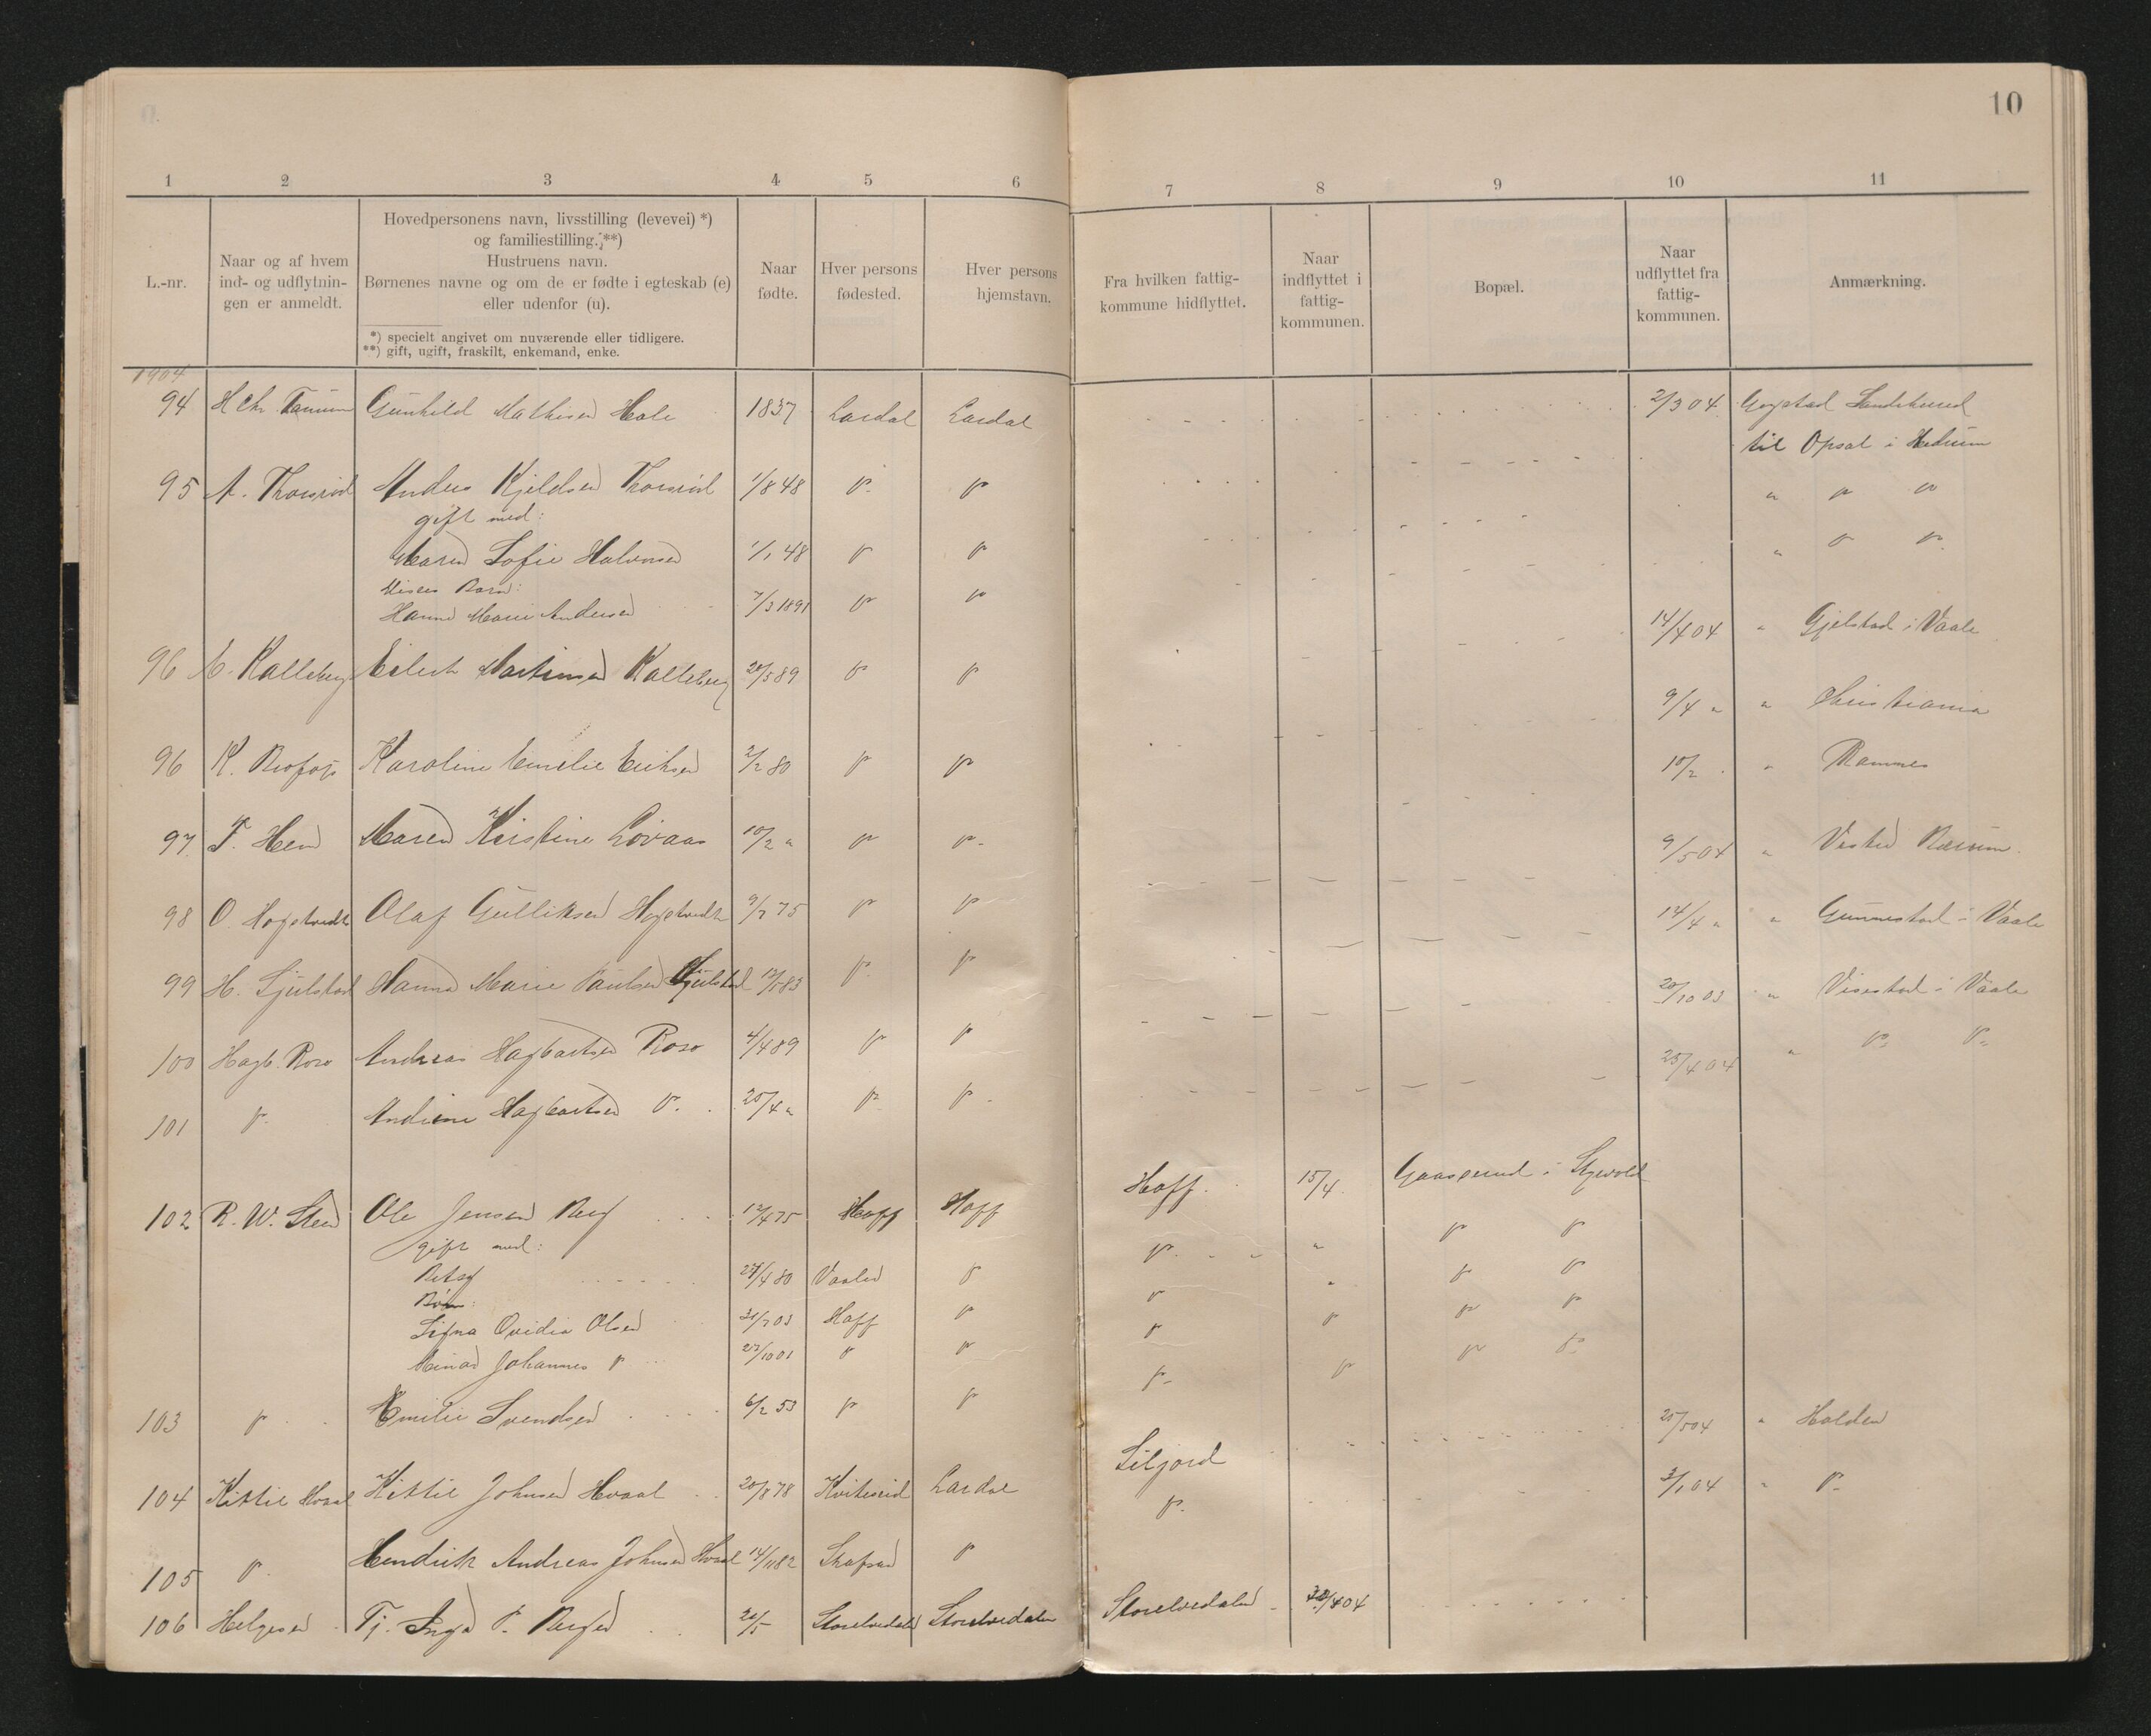 10
1 2 3 4 5 6 7 8 9 10 11
L.-nr.
Naar og af hvem
ind- og udflytnin-
gen er anmeldt.
Hovedpersonens navn, livsstilling (levevei) *)
og familiestilling. **)
Hustruens navn.
Børnenes navne og om de er fødte i egteskab (e)
eller udenfor (u).
*) specielt angivet om nuværende eller tidligere.
**) gift, ugift, fraskilt, enkemand, enke.
Naar
fødte.
Hver persons
fødested.
Hver persons
hjemstavn.
Fra hvilken fattig-
kommune hidflyttet.
Naar
indflyttet i
fattig-
kommunen.
Bopæl.
Naar
udflyttet fra
fattig-
kommunen.
Anmærkning.
1904
94 H Chr. Tanum Gunhild Mathisen Hole 1837 Lardal Lardal 2/3 04
til Opsal i Hedrum
95 A. Thorsrød Anders Kjeldsen Thorsrød 1/8 48 " "
gift med:
Maren Sofie Halvorsen 1/1 48 " "
Disses Barn:
Hanna Marie Andersen 7/3 1891 " "
96 Kalleberg Eilert Martinsen Kalleberg 89 " " 14/4 04 " Gjelstad i Vaale
96 K. Brofoss Karoline Emilie Eriksen 2/2 80 " " 9/4 " " Christiania
97 T. Hem Maren Kirstine Løvaas 10/2 " " " 10/2 " Ramnes
98 O. Hogstvedt Olaf Gulliksen Hogstvedt 75 " " 9/5 04 " Vestre Bærum
99 H. Gjulstad Hanna Marie Paulsen Gjulstad 83 " " 14/4 " " Gunnestad i Vaale
100 Hagb. Roso Andreas Hagbartsen Roso 4/4 89 " " 20/10 03 " Visestad i Vaale
101 " Andrine Hagbartsen " 25/4 " " " 25/4 04 " " "
102 R. W. Steen Ole Jensen Berg 12/4 75 Hoff Hoff Hoff 15/4 Gaaserud i
gift med:
27/4 80 Vaaler " " " " "
Børn:
Signa Ovidia Olsen 03 Hoff " " " " "
Einar Johannes " 27/10 01 " " " " " "
103 " Emilie Svendsen 6/2 53 " " " " " "
104 Kittil Hvaal Kittil Johnsen Hvaal 20/8 78 Kviteseid Lardal Siljord 25/5 04 " Holden
105 " Hendrik Andreas Johnsen Hvaal 14/11 82 Skafsaa " " 3/1 04 " "
106 Helgesen Tj. Inga P. Berge Storelvedalen Storelvedalen Storelvedalen 4 04